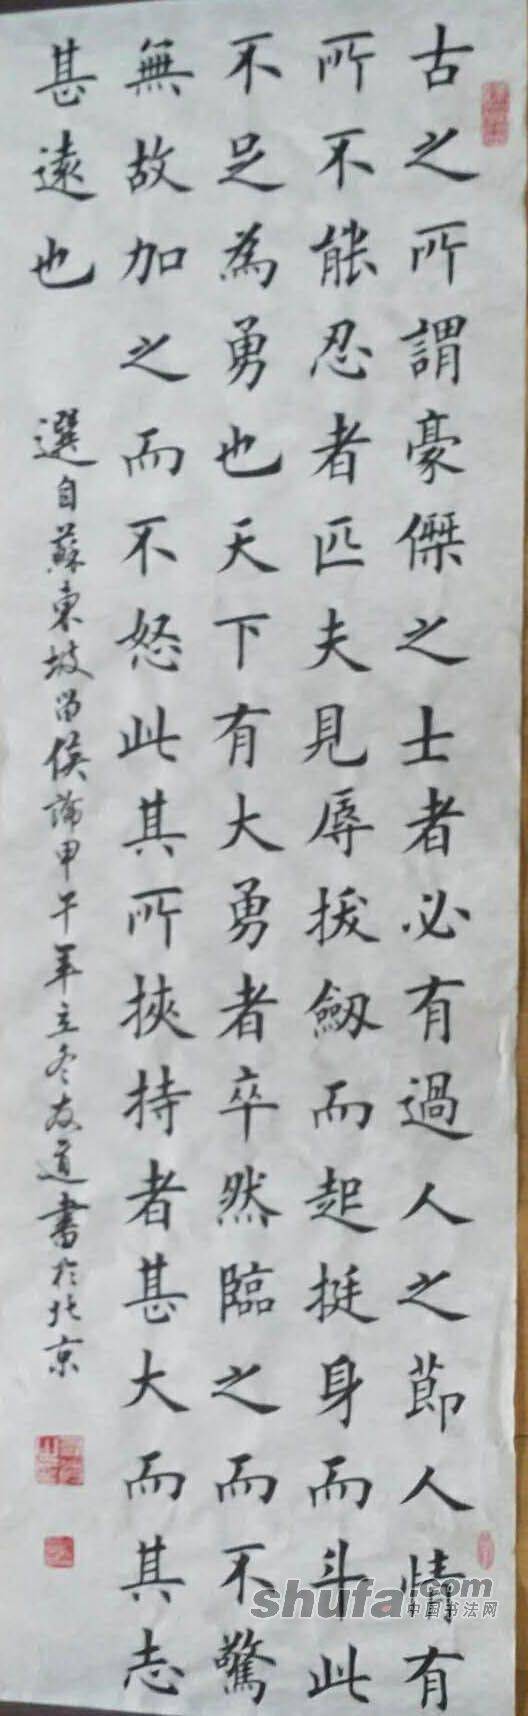 古之所謂豪傑之士者必有過人之節人情有
所不能忍者匹夫見辱拔劔而起挺身而斗此
不足為勇也天下有大勇者卒然臨之而不驚
無故加之而不怒此其所挾持者甚大而其志
甚遠也
選自蘇東坡留侯論甲午年立冬友道書於北京
shufa.com
中国书法网